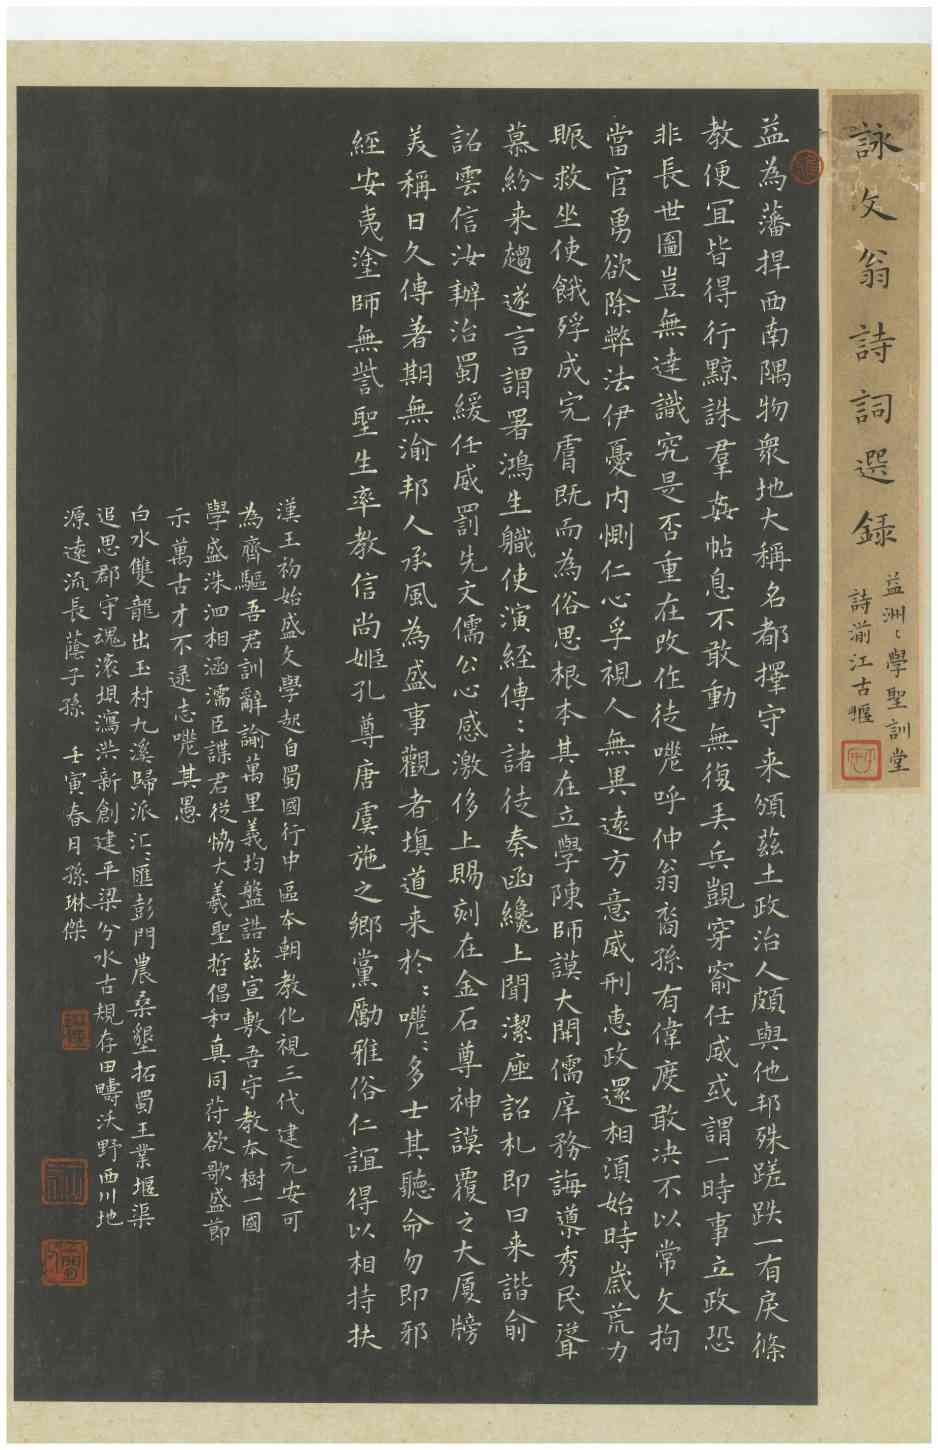 詠文翁詩詞選録
益洲〻學聖訓堂
詩湔江古堰
益為藩捍西南隅物衆地大稱名都擇守来頒茲土政治人頗與他邦殊蹉跌一有戾條
教便宜皆得行黥誅羣姦帖息不敢動無復弄兵覬穿窬任威或謂一時事立政恐
非長世圖豈無達識究是否重在改作徒嘅呼仲翁裔孫有偉度敢決不以常文拘
當官勇欲除弊法伊憂内惻仁心孚視人無異遠方意威刑恵政還相須始時歳荒力
賑救坐使餓殍成完膚既而為俗思根本其在立學陳師謨大開儒庠務誨導秀民聳
慕紛来趨遂言謂署鴻生職使演經傳〻諸徒奏函纔上聞潔座詔札即日来諧俞
詔雲信汝辦治蜀緩任威罰先文儒公心感激侈上賜刻在金石尊神謨覆之大厦牓
美稱日久傳著期無渝邦人承風為盛事觀者填道来於〻嘅〻多士其聽命勿即邪
經安夷塗師無訾聖生率教信尚姬孔尊唐虞施之鄉黨勵雅俗仁誼得以相持扶
漢王初始盛文學起自蜀國行中區本朝教化視三代建元安可
為齊驅吾君訓辭諭萬里義均盤誥茲宣敷吾守教本樹一國
學盛洙泗相涵濡臣諜君從恊大義聖哲倡和真同苻欲歌盛節
示萬古才不逮志嘅其愚
白水雙龍出玉村九溪歸派汇〻匯彭門農桑墾拓蜀王業堰渠
追思郡守魂滚垻瀉洪新創建平梁分水古規存田疇沃野西川地
源遠流長蔭子孫 壬寅春日孫琳傑